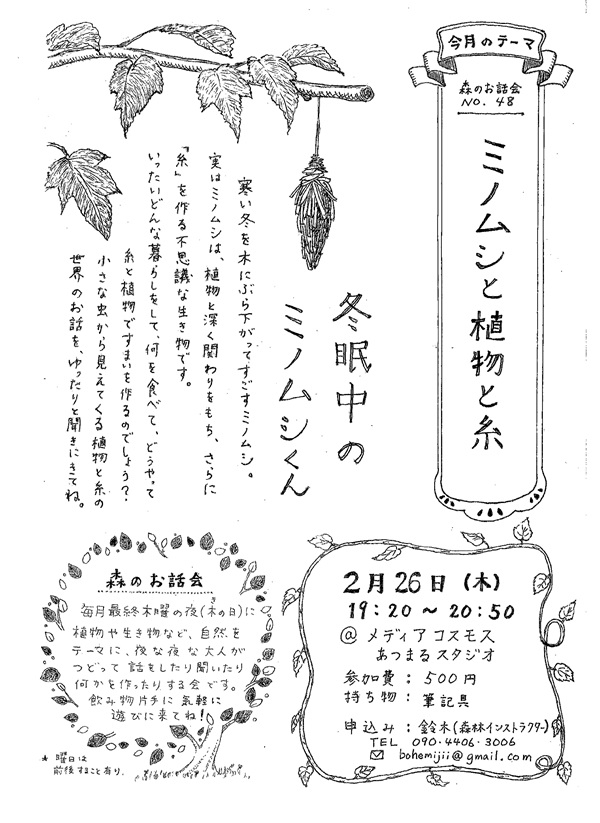 今月のテーマ
森のお話会
NO. 48
ミノムシと植物と糸
冬眠中の
ミノムシくん
寒い冬を木にぶら下がってすごすミノムシ。
実はミノムシは、植物と深く関わりをもち、さらに
「糸」を作る不思議な生き物です。
いったいどんな暮らしをして、何を食べて、どうやって
糸と植物ですまいを作るのでしょう？
小さな虫から見えてくる植物と糸の
世界のお話を、ゆったりと聞きにきてね。
森のお話会
毎月最終木曜の夜（木の日）に
植物や生き物など、自然を
テーマに、夜な夜な大人が
つどって話をしたり聞いたり
何かを作ったりする会です。
飲み物片手に気軽に
遊びに来てね！
* 曜日は
前後すること有り.
2月26日（木）
19：20～20：50
@ メディアコスモス
あつまるスタジオ
参加費：500円
持ち物：筆記具
申込み：鈴木（森林インストラクター）
TEL 090-4406-3006
bohemijii@gmail.com